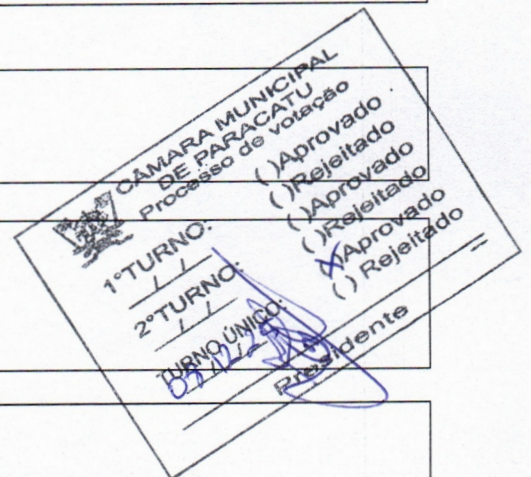 CÂMARA MUNICIPAL
DE PARACATU
Processo de votação
1ºTURNO: ( )Aprovado
_/_/_ ( )Rejeitado
2ºTURNO: ( )Aprovado
_/_/_ ( )Rejeitado
TURNO ÚNICO: (X)Aprovado
( ) Rejeitado
Presidente